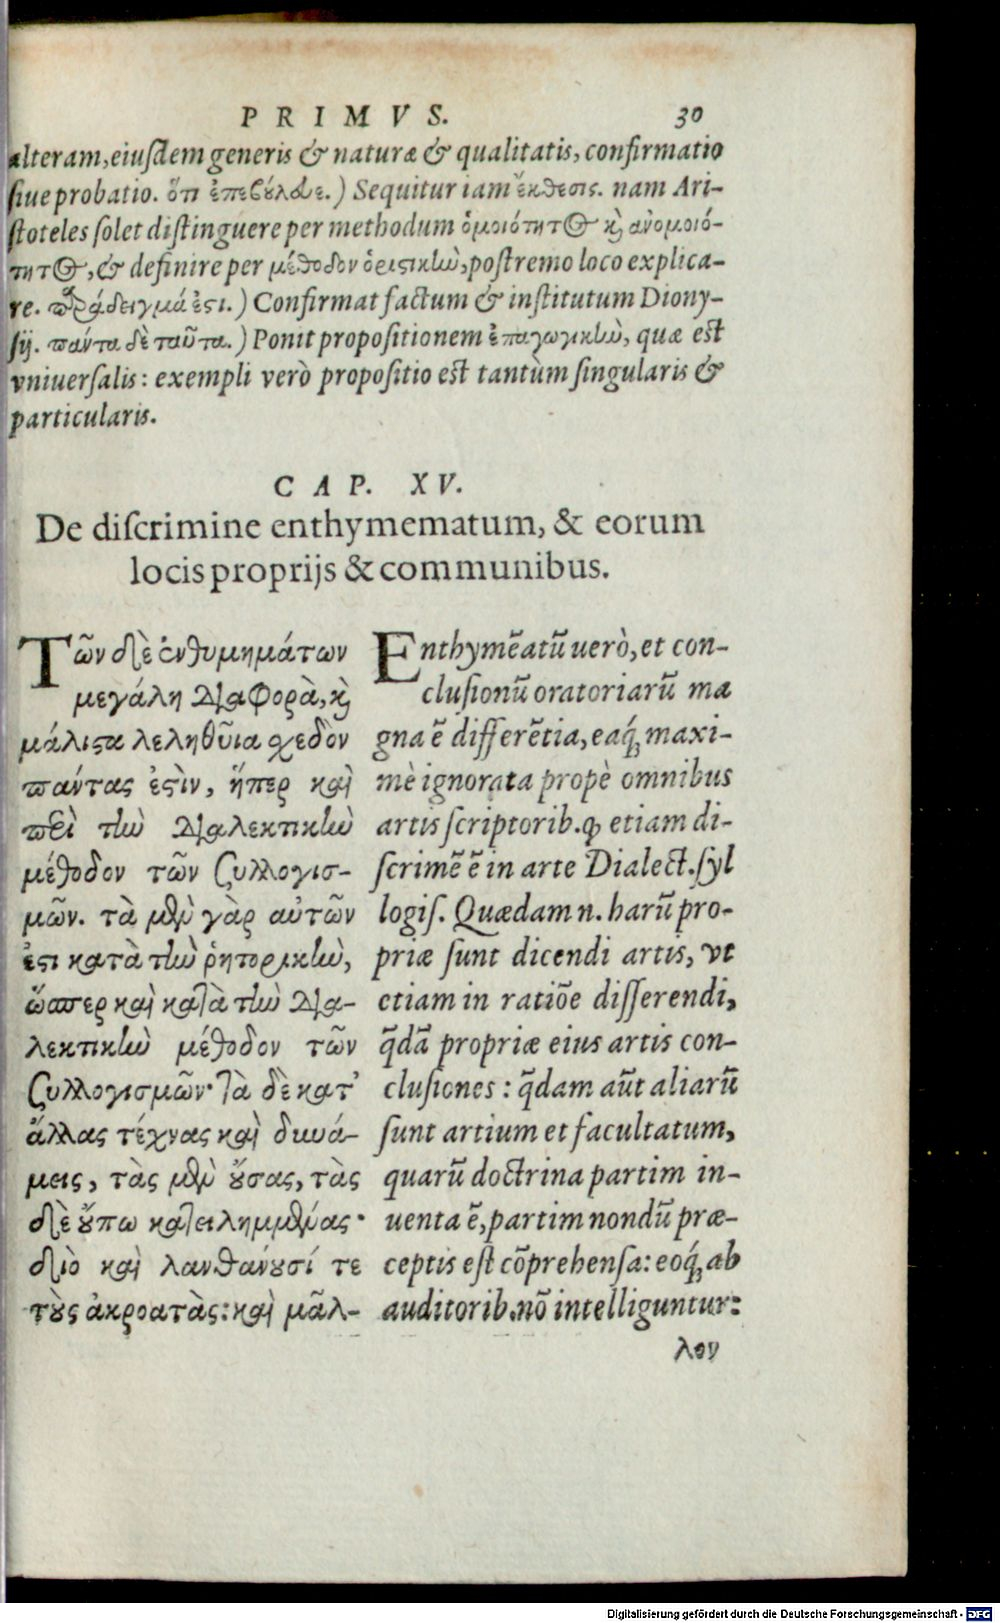 PRIMVS. 30
alteram, eiusdem generis & naturæ & qualitatis, confirmatio
siue probatio. ὅτι ἐπεβούλευε.) Sequitur iam ἔκθεσις. nam Ari-
stoteles solet distinguere per methodum ὁμοιότητος καὶ ἀνομοιό-
τητος, & definire per μέθοδον ὁριστικὴν, postremo loco explica-
re. παράδειγμά ἐστι.) Confirmat factum & institutum Diony-
sij. πάντα δὲ ταῦτα.) Ponit propositionem ἐπαγωγικὴν, quæ est
vniuersalis: exempli verò propositio est tantùm singularis &
particularis.
CAP. XV.
De discrimine enthymematum, & eorum
locis proprijs & communibus.
Τῶν δὲ ἐνθυμημάτων
μεγάλη διαφορὰ, καὶ
μάλιστα λεληθυῖα σχεδὸν
πάντας ἐστὶν, ἥπερ καὶ
περὶ τὴν διαλεκτικὴν
μέθοδον τῶν συλλογισ-
μῶν. τὰ μὲν γὰρ αὐτῶν
ἐστι κατὰ τὴν ῥητορικὴν,
ὥσπερ καὶ κατὰ τὴν δια-
λεκτικὴν μέθοδον τῶν
συλλογισμῶν· τὰ δὲ κατ'
ἄλλας τέχνας καὶ δυνά-
μεις, τὰς μὲν οὔσας, τὰς
δὲ οὔπω κατειλημμένας·
διὸ καὶ λανθάνουσί τε
τοὺς ἀκροατὰς: καὶ μᾶλ-
Enthymēatū uerò, et con-
clusionū oratoriarū ma
gna ē differētia, eaq́; maxi-
mè ignorata propè omnibus
artis scriptorib. q; etiam di-
scrimē ē in arte Dialect. syl
logis. Quædam n. harū pro-
priæ sunt dicendi artis, vt
etiam in ratiōe disserendi,
q̄dā propriæ eius artis con-
clusiones: q̄dam aūt aliarū
sunt artium et facultatum,
quarū doctrina partim in-
uenta ē, partim nondū præ-
ceptis est cōprehensa: eoq́; ab
auditorib. nō intelliguntur:
λον
Digitalisierung gefördert durch die Deutsche Forschungsgemeinschaft - DFG